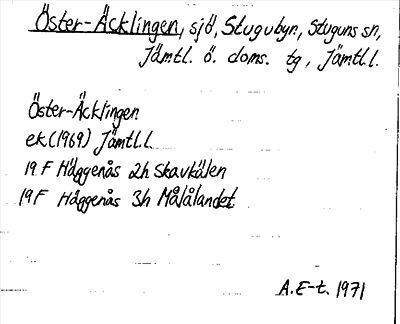 Öster-Äcklingen, sjö, Stugubyn, Stuguns sn,
Jämtl. ö. doms. tg, Jämtl.l.
Öster-Äcklingen
ek(1969) Jämtl.l.
19 F Häggenås 2h Skavkälen
19 F Häggenås 3h Målålandet
A.E-t. 1971